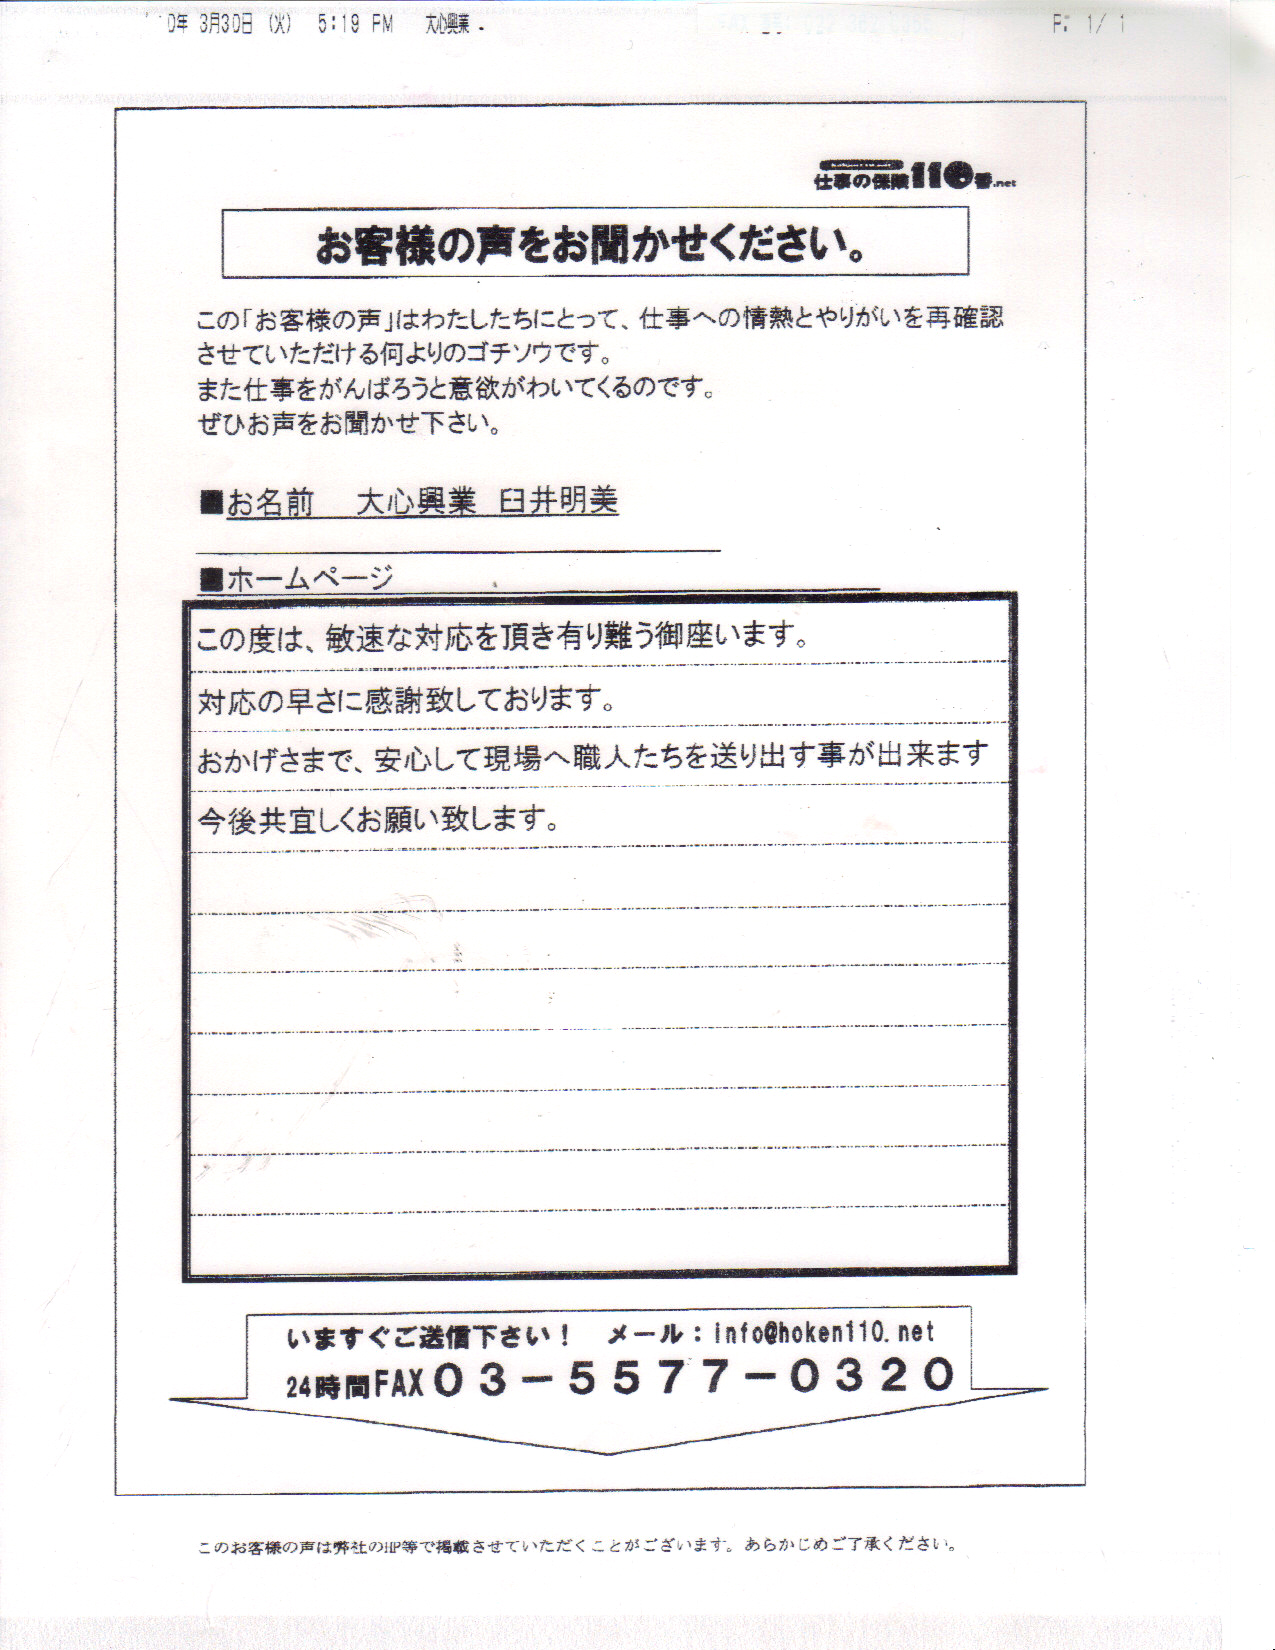 0年 3月30日 (火) 5:19 PM 大心興業 P: 1/ 1
仕事の保険110番.net
お客様の声をお聞かせください。
この「お客様の声」はわたしたちにとって、仕事への情熱とやりがいを再確認
させていただける何よりのゴチソウです。
また仕事をがんばろうと意欲がわいてくるのです。
ぜひお声をお聞かせ下さい。
■お名前 大心興業 臼井明美
■ホームページ
この度は、敏速な対応を頂き有り難う御座います。
対応の早さに感謝致しております。
おかげさまで、安心して現場へ職人たちを送り出す事が出来ます
今後共宜しくお願い致します。
いますぐご送信下さい！ メール：info@hoken110.net
24時間FAX０３－５５７７－０３２０
このお客様の声は弊社のHP等で掲載させていただくことがございます。あらかじめご了承ください。